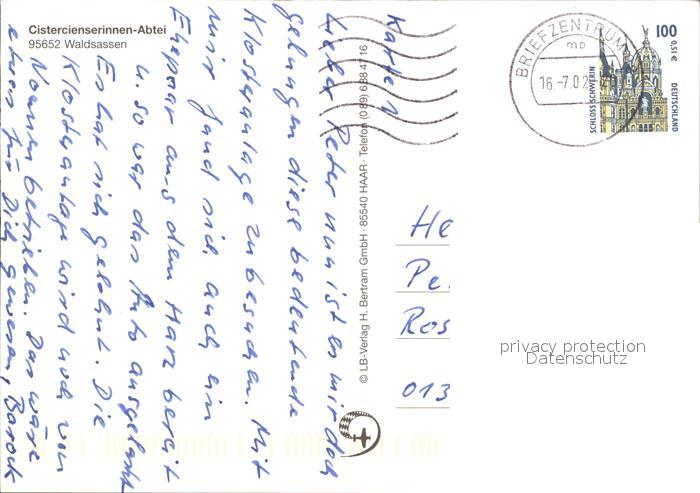 Cistercienserinnen-Abtei
95652 Waldsassen
Karte 1
Lieber Peter nun ist es mir doch
gelungen diese bedeutende
Klosteranlage zu besuchen. Mit
mir fand sich auch ein
Ehepaar aus dem Harz bereit
u. so war das Auto ausgelastet
Es hat sich gelohnt. Die
Klosteranlage wird noch von
Nonnen betrieben. Das wäre
etwas für Dich gewesen, Barock
© LB-Verlag H. Bertram GmbH · 85540 HAAR · Telefon (0 89) 6 88 47 16
BRIEFZENTRUM
mb
16.-7.02
SCHLOSS SCHWERIN
100
0,51 €
DEUTSCHLAND
He
Pe
Ros
013
privacy protection
Datenschutz